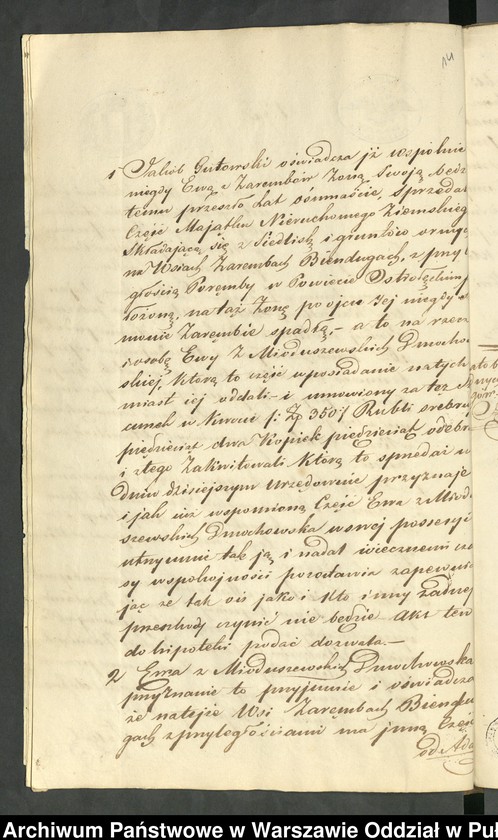 14
1 Jakób Gutowski oświadcza jż wspolnie
niegdy Ewą z Zarembów Żoną Swoją będz
temu przeszło Lat ośmnaście, sprzedał
Część Majątku Nieruchomego Ziemskieg
Składającą się z Siedlisk i gruntów ornyc
na Wsiach Zarembach Biendugach, z przy
głością Poremby w Powiecie Ostrołęckim
łożoną, na taż Żonę po ojcu Jej niegdy
munie Zarębie spadłą,- a to na rzecz
i osobę Ewy z Mioduszewskich Dmocho
skiej, Którą to część w posiadanie natych
miast jej oddali - i umówiony za też
cunek w kwocie f: Zp 350 Rubli srebre
pięćdziesiąt dwa Kopiek pięćdziesiąt odebr
i z tego Zakwitowali Którą to sprzedaż w
dniu dzisiejszym Urzędownie przyznaje
i jak już wspomnioną Część Ewa z Miod
szewskich Dmochowska w swej possessyi
utrzymuie tak ją i nadal wiecznemi cza
sy w spokojności pozostawia zapewni
jąc że tak on jako i Kto inny żadnej
przeszkody czynić nie będzie Akt ten
do hipoteki podać dozwala.-
2 Ewa z Mioduszewskich Dmochowska
przyznanie to przyjmuie i oświadcza
że na tejże Wsi Zarembach Biendu
gach z przyległościami ma jnną Częś
od Ada
Archiwum Państwowe w Warszawie Oddział w Puł